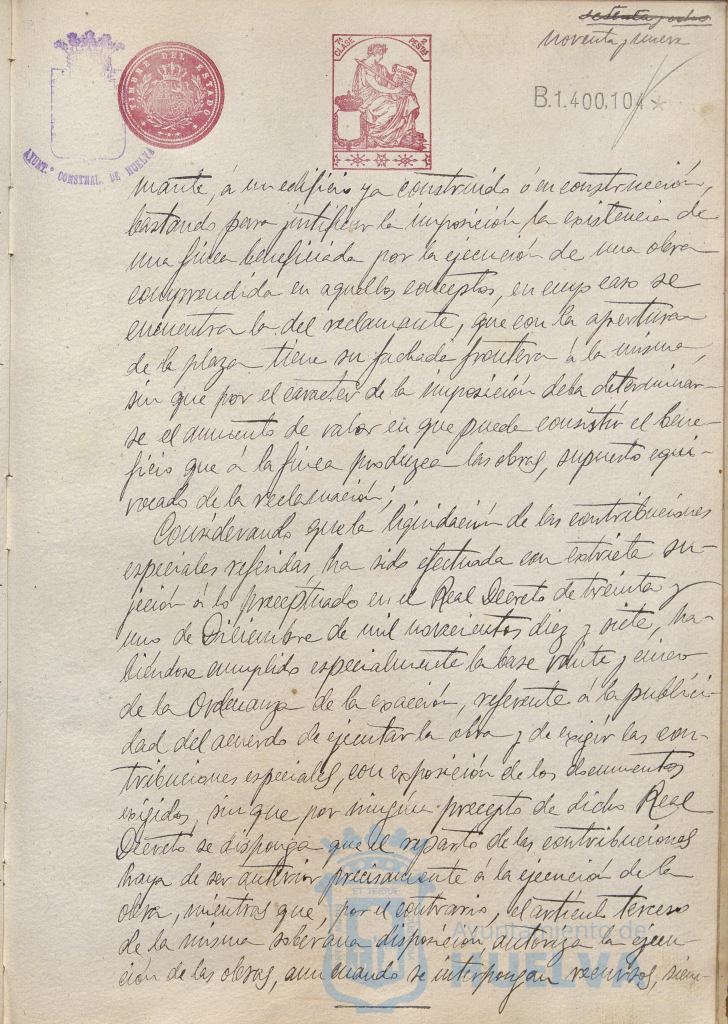 setenta y ocho
noventa y nueve
TIMBRE DEL ESTADO
7ª CLASE 2 PESETAS
B.1.400,104 *
AYUNT.º CONSTNAL. DE HUELVA
mante, á un edificio ya construido ó en construcción,
bastando para justificar la imposición la existencia de
una finca beneficiada por la ejecución de una obra
comprendida en aquellos conceptos, en cuyo caso se
encuentra la del reclamante, que con la apertura
de la plaza tiene su fachada frontera á la misma,
sin que por el caracter de la imposición deba determinar-
se el aumento de valor en que puede consistir el bene-
ficio que á la finca produzca las obras, supuesto equi-
vocado de la reclamación;
Considerando que la liquidación de las contribuciones
especiales referidas, ha sido efectuada con estricta su-
jeción á lo preceptuado en el Real Decreto de treinta y
uno de Diciembre de mil novecientos diez y siete, ha-
biéndose cumplido especialmente la base veinte y cinco
de la Ordenanza de la exacción, referente á la publici-
dad del acuerdo de ejecutar la obra y de exigir las con-
tribuciones especiales, con exposición de los documentos
exigidos, sin que por ningún precepto de dicho Real
Decreto se disponga que el reparto de las contribuciones
haya de ser anterior precisamente á la ejecución de la
obra, mientras que, por el contrario, el artículo tercero
de la misma soberana disposición autoriza la ejecu-
ción de las obras, aun cuando se interpongan recursos, siem-
Ayuntamiento de
HUELVA